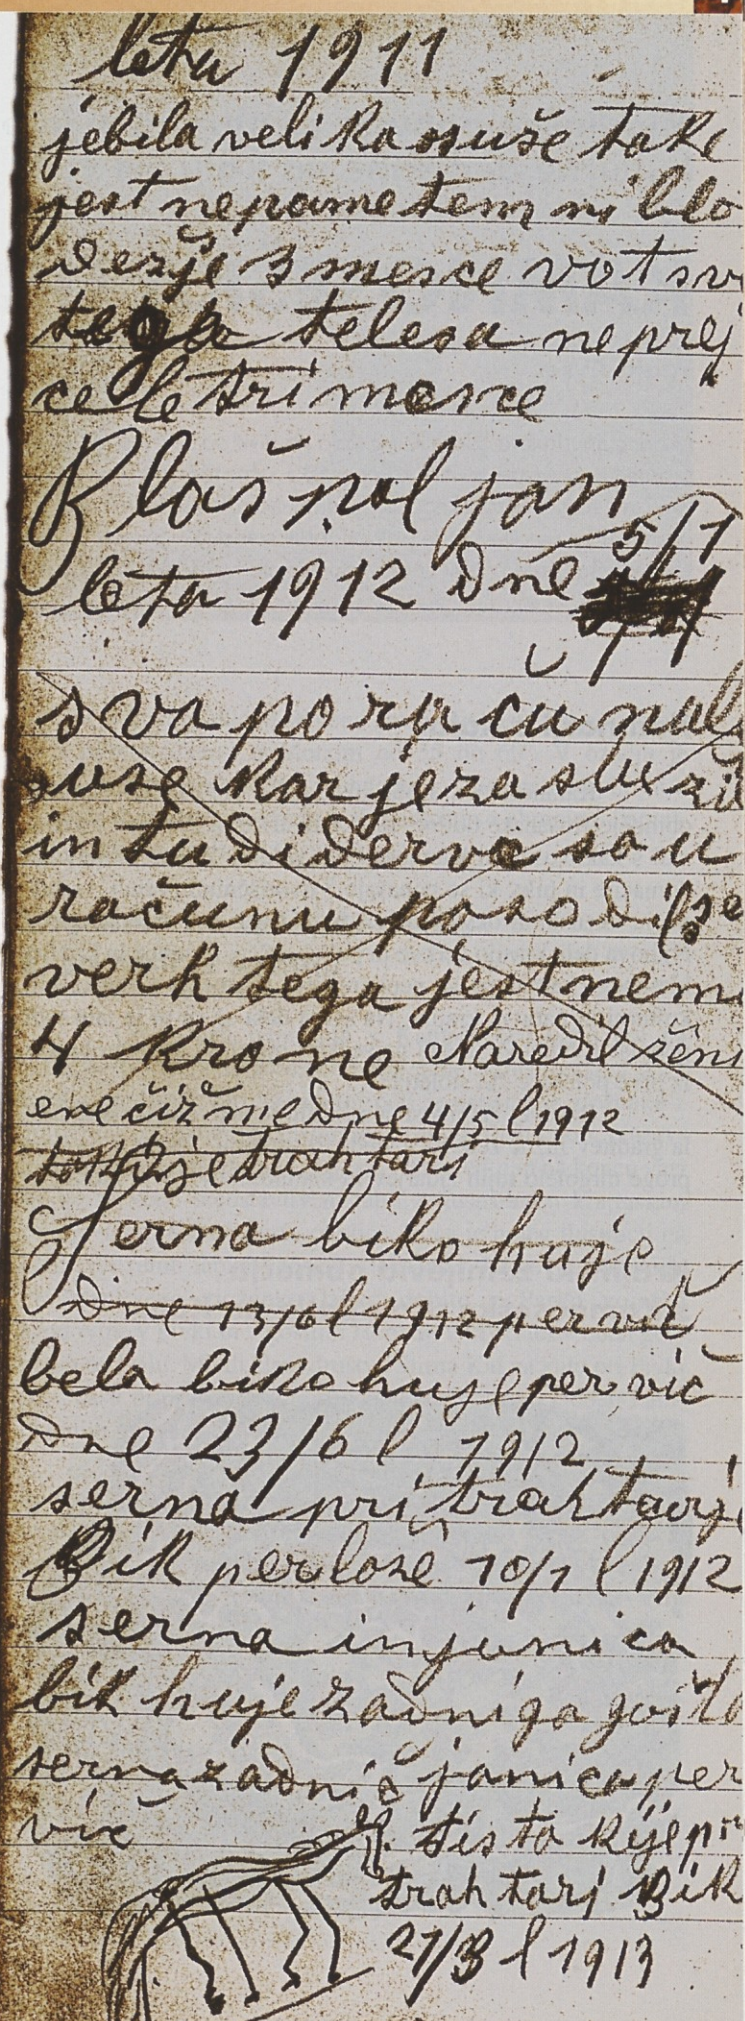 leta 1911
jebila velika osuše take
jest nepametem ni blo
dežje 3 mesce vot sv
telesa neprej
cele tri mesce
Blaš poljan
5/1
leta 1912 dne
sva poračunal
use kar jezasluži
in tudi derve so u
računu posodil
verh tega jest nem
4 krone Naredil žen
ene čižme dne 4/5 l 1912
je trahtari
Serna biko huje
dne 13/6 l 1912 pervič
bela biko huje pervič
Dne 23/6 l 1912
serna pri trahtarj
Bik perloze 10/1 l 1912
serna injunica
bik huje zadniga
serna zadnič junica per
vič
tista kije pr
trahtarj Bik
21/3 l 1913